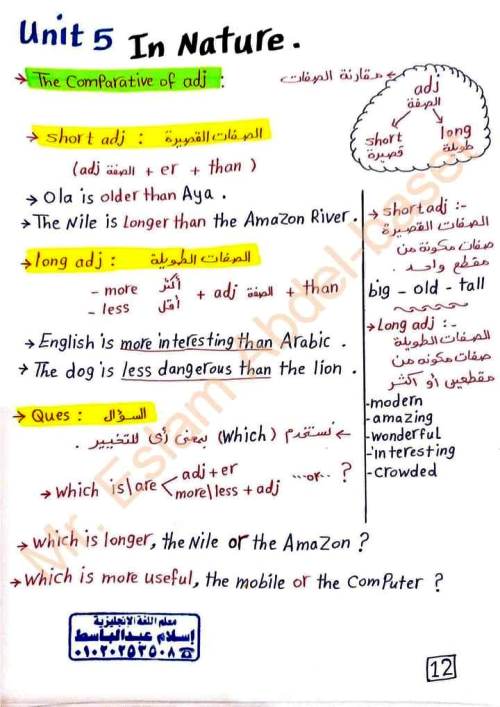 Unit 5 In Nature.
→ The Comparative of adj : مقارنة الصفات
adj
الصفة
short
قصيرة
long
طويلة
→ short adj : الصفات القصيرة
(adj الصفة + er + than)
→ Ola is older than Aya.
→ The Nile is Longer than the Amazon River.
→ long adj : الصفات الطويلة
- more أكثر
- less أقل
+ adj الصفة + than
→ English is more interesting than Arabic.
→ The dog is less dangerous than the lion.
→ Ques : السؤال
← نستخدم (Which) بمعنى أى للتخيير .
→ which is/are < adj + er
more\less + adj ...or.. ?
→ which is longer, the Nile or the Amazon ?
→ which is more useful, the mobile or the Computer ?
→ short adj :-
الصفات القصيرة
صفات مكونة من
مقطع واحد .
big - old - tall
→ Long adj :-
الصفات الطويلة
صفات مكونه من
مقطعين أو أكثر
-modern
-amazing
-wonderful
-interesting
-crowded
Mr. Eslam Abdel-baset
معلم اللغة الإنجليزية
إسلام عبدالباسط
٠١٠٢٠٢٥٢٥٠٨
12